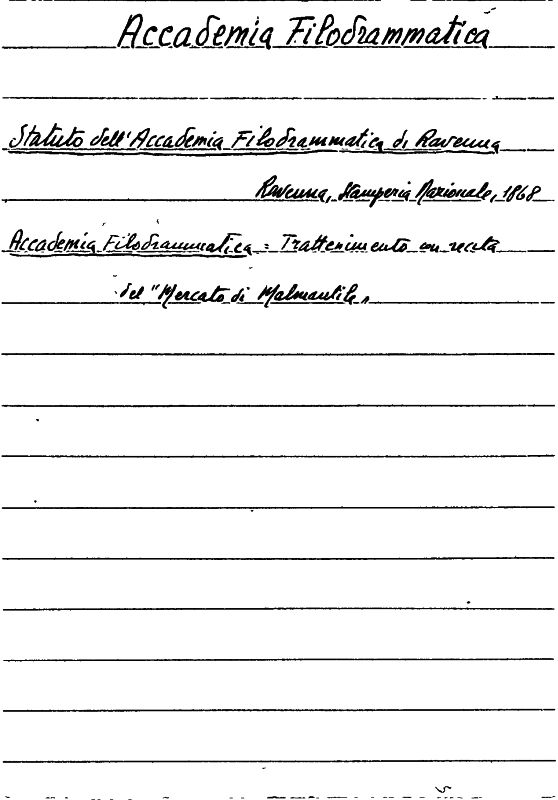 Accademia Filodrammatica
Statuto dell'Accademia Filodrammatica di Ravenna
Ravenna, Stamperia Nazionale, 1868
Accademia Filodrammatica = Trattenimento con recita
del "Mercato di Malmantile„